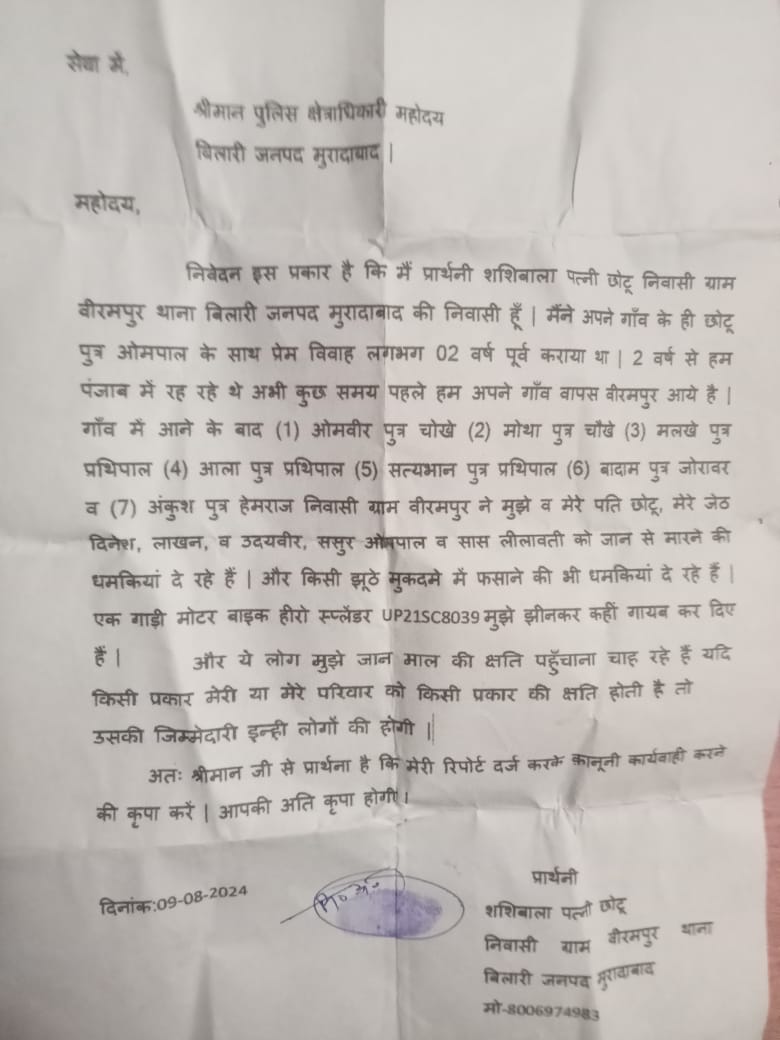 सेवा में,
श्रीमान पुलिस क्षेत्राधिकारी महोदय
बिलारी जनपद मुरादाबाद |
महोदय,
निवेदन इस प्रकार है कि मैं प्रार्थनी शशिबाला पत्नी छोटू निवासी ग्राम
वीरमपुर थाना बिलारी जनपद मुरादाबाद की निवासी हूँ | मैंने अपने गाँव के ही छोटू
पुत्र ओमपाल के साथ प्रेम विवाह लगभग 02 वर्ष पूर्व कराया था | 2 वर्ष से हम
पंजाब में रह रहे थे अभी कुछ समय पहले हम अपने गाँव वापस वीरमपुर आये है |
गाँव में आने के बाद (1) ओमवीर पुत्र चोखे (2) मोथा पुत्र चौखे (3) मलखे पुत्र
प्रथिपाल (4) आला पुत्र प्रथिपाल (5) सत्यभान पुत्र प्रथिपाल (6) बादाम पुत्र जोरावर
व (7) अंकुश पुत्र हेमराज निवासी ग्राम वीरमपुर ने मुझे व मेरे पति छोटू, मेरे जेठ
दिनेश, लाखन, व उदयवीर, ससुर ओमपाल व सास लीलावती को जान से मारने की
धमकियां दे रहे हैं | और किसी झूठे मुकदमे में फसाने की भी धमकियां दे रहे हैं |
एक गाड़ी मोटर बाइक हीरो स्प्लेंडर UP21SC8039 मुझे झीनकर कहीं गायब कर दिए
हैं | और ये लोग मुझे जान माल की क्षति पहुँचाना चाह रहे हैं यदि
किसी प्रकार मेरी या मेरे परिवार को किसी प्रकार की क्षति होती है तो
उसकी जिम्मेदारी इन्ही लोगों की होगी |
अतः श्रीमान जी से प्रार्थना है कि मेरी रिपोर्ट दर्ज करके कानूनी कार्यवाही करने
की कृपा करें | आपकी अति कृपा होगी |
प्रार्थनी
दिनांक:09-08-2024
शशिबाला पत्नी छोटू
निवासी ग्राम वीरमपुर थाना
बिलारी जनपद मुरादाबाद
मो-8006974983